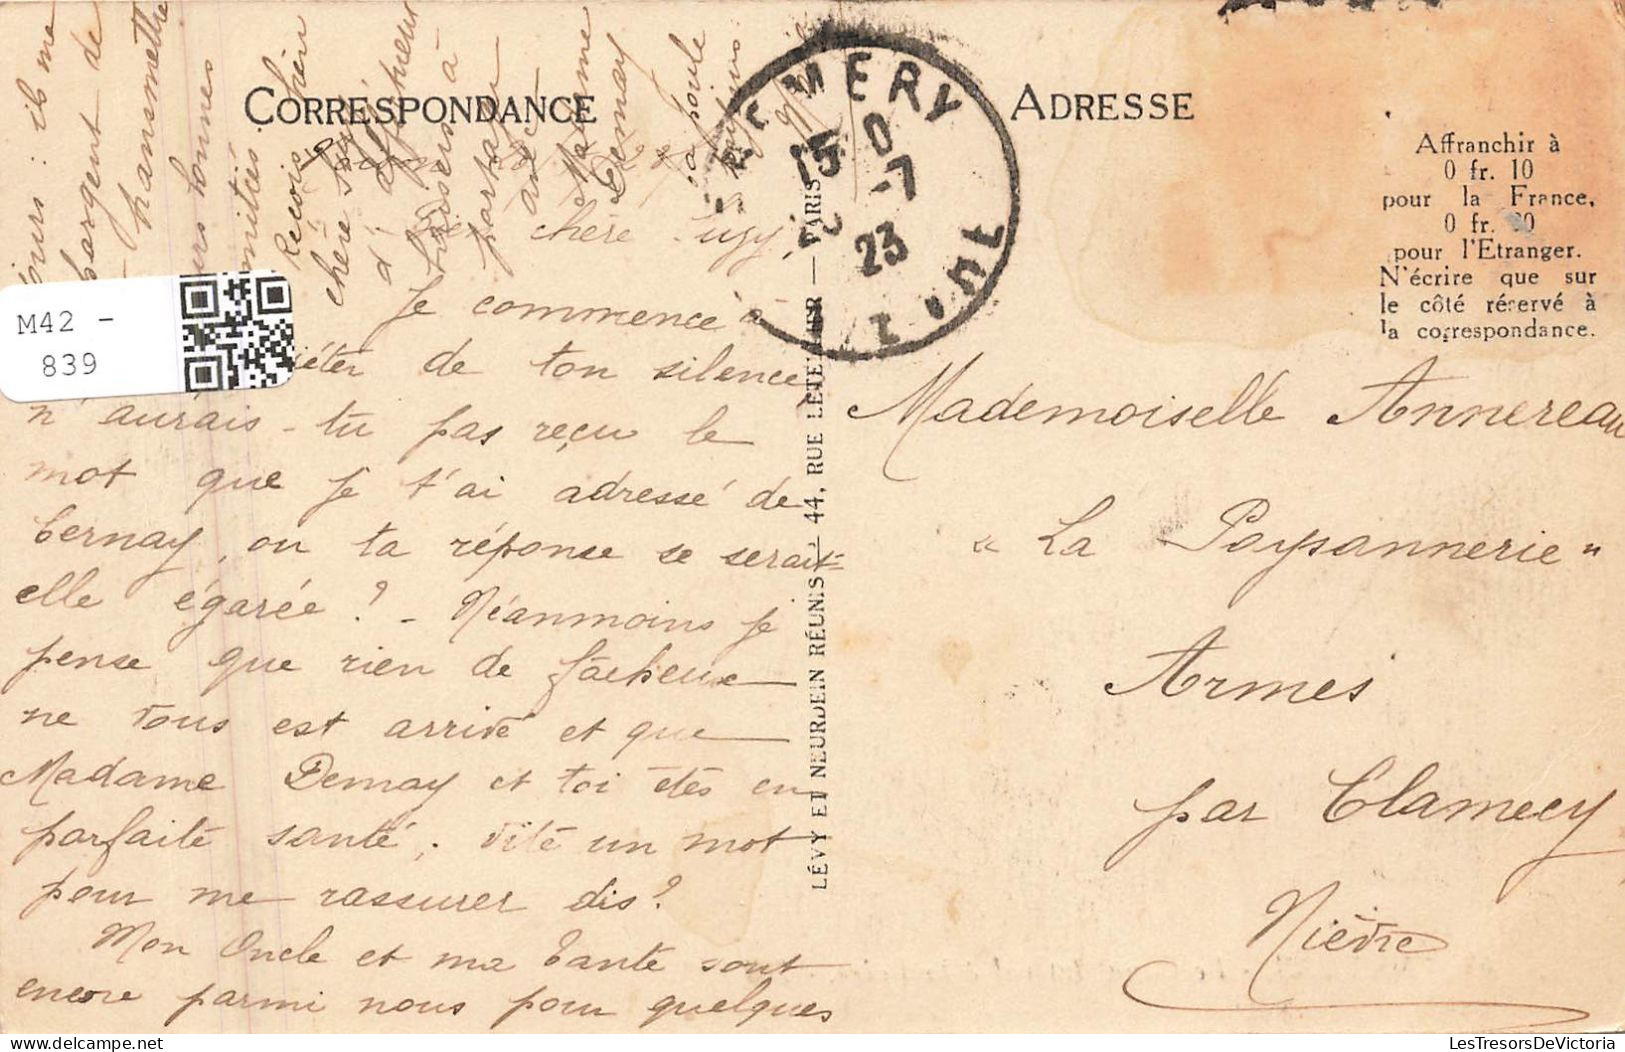 CORRESPONDANCE
ADRESSE
Affranchir à
0 fr. 10
pour la France,
0 fr. 20
pour l'Etranger.
N'écrire que sur
le côté réservé à
la correspondance.
MERY
15
-7
23
M42 -
839
chère Suzy,
Je commence à
de ton silence,
n'aurais-tu pas reçu le
mot que je t'ai adressé de
Cernay, ou ta réponse se serait-
elle égarée ? - Néanmoins je
pense que rien de fâcheux
ne vous est arrivé et que
Madame Demay et toi êtes en
parfaite santé, vite un mot
pour me rassurer dis ?
Mon Oncle et ma Tante sont
encore parmi nous pour quelques
jours : ils me
chargent de
transmettre
leurs bonnes
amitiés.
Reçois bien
chère Suzy
d'affectueux
baisers à
partager
avec
Madame
Demay
LÉVY ET NEURDEIN RÉUNIS - 44, RUE LETELLIER — PARIS
Mademoiselle Annereau
"La Paysannerie"
Armes
par Clamecy
Nièvre
LesTresorsDeVictoria